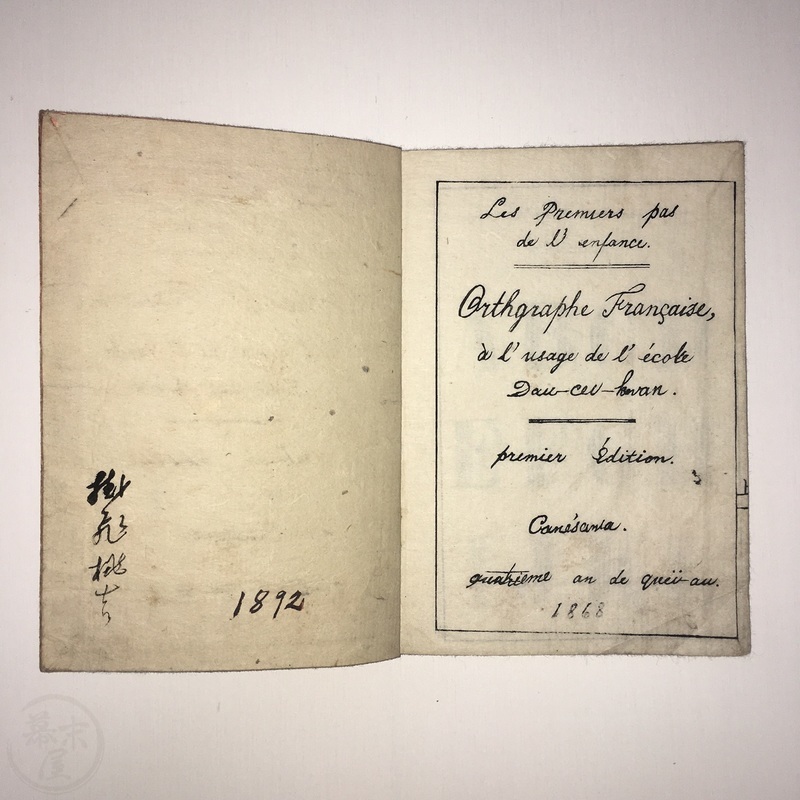 桃吉
1892
Les Premiers pas
de l' enfance.
Orthgraphe Française,
à l' usage de l' école
Dau-ceu-kwan.
premier Édition.
Canésawa.
quatrieme an de queï-au.
1868
幕末
屋